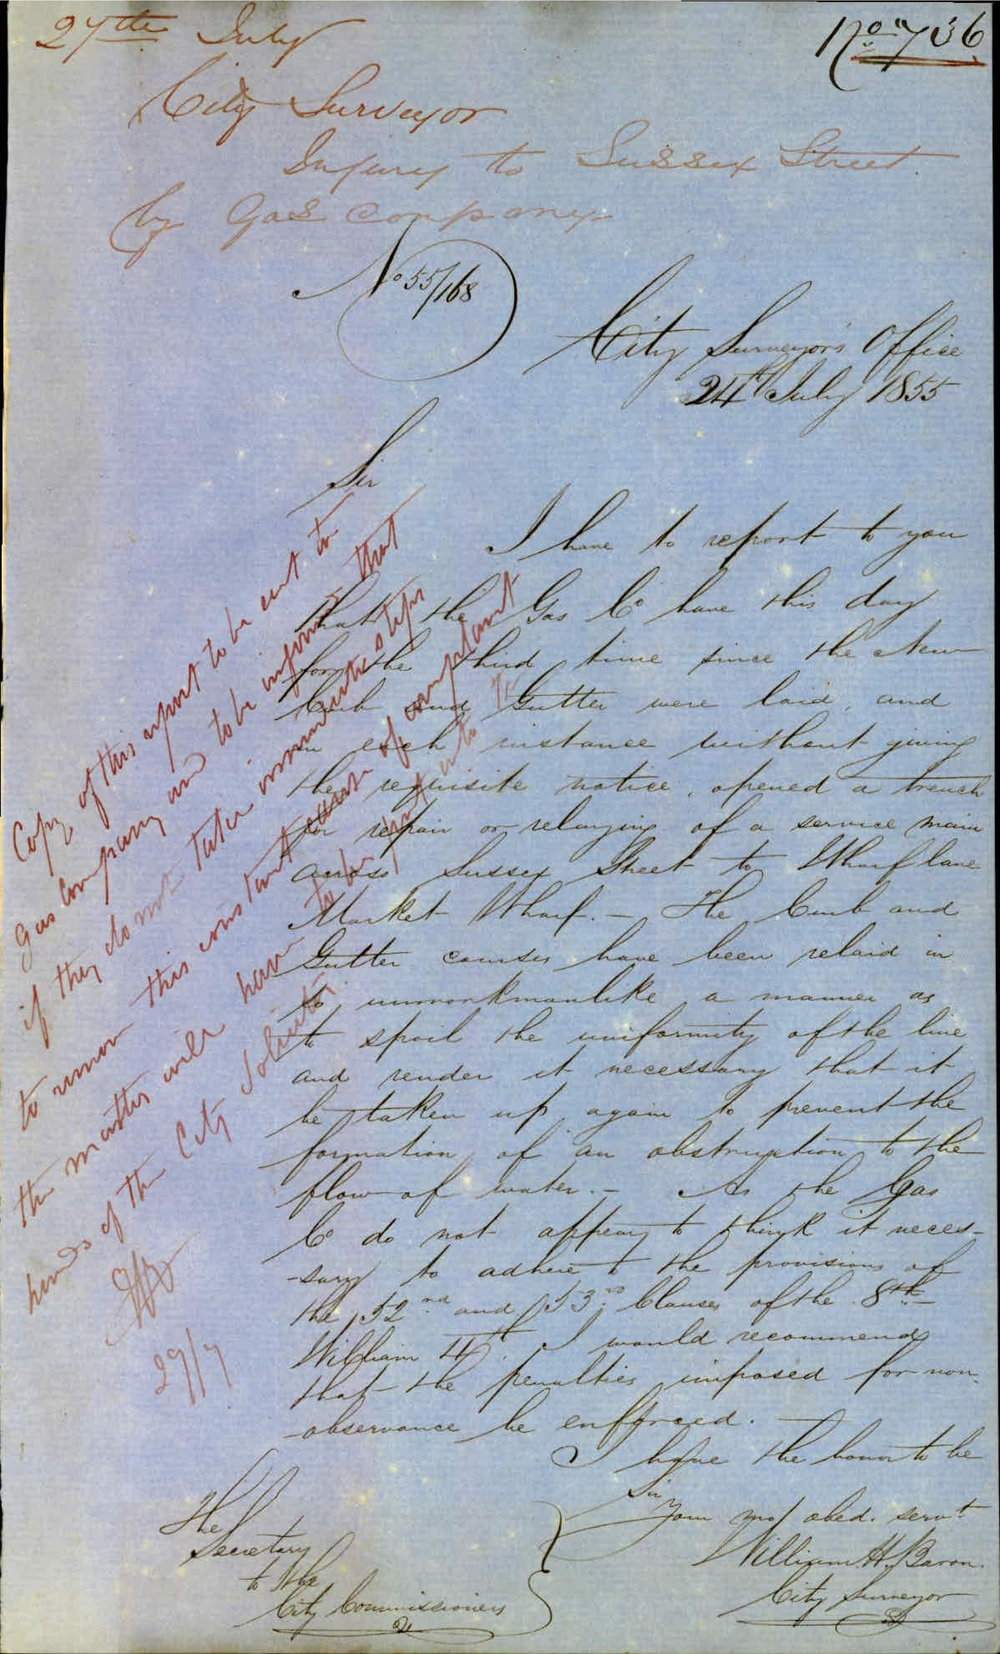 27th July
No 736
City Surveyor
Injury to Sussex Street
by Gas Company
No 55/168
City Surveyor's Office
24th July 1855
Sir
I have to report to you
that the Gas Co have this day
for the third time since the New
Curb and Gutter were laid, and
in each instance without giving
the requisite notice, opened a trench
for repair or relaying of a service main
across Sussex Street to Wharf lane
Market Wharf. — The Curb and
Gutter courses have been relaid in
so unworkmanlike a manner as
to spoil the uniformity of the line
and render it necessary that it
be taken up again to prevent the
formation of an obstruction to the
flow of water. — As the Gas
Co do not appear to think it neces-
-sary to adhere to the provisions of
the 52nd and 53rd Clauses of the 8th
William 4th I would recommend
that the penalties imposed for non-
-observance be enforced.
I have the honor to be
Sir
Your mo/ obed. servt
William H. Baron
City Surveyor
The
Secretary
to the
City Commissioners
Copy of this report to be sent to
Gas Company and to be informed that
if they do not take immediate steps
to remove this constant cause of complaint
the matter will have to be put into the
hands of the City Solicitor
29/7